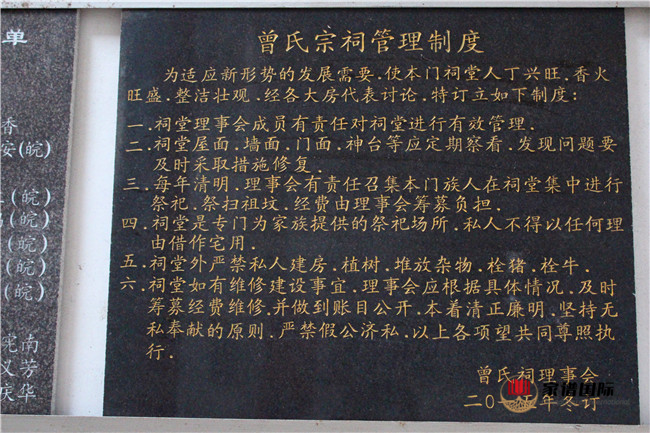 单
香
安(皖)
(皖)
(皖)
(皖)
(皖)
(皖)
南
义芳
庆华
曾氏宗祠管理制度
为适应新形势的发展需要.使本门祠堂人丁兴旺.香火
旺盛.整洁壮观.经各大房代表讨论.特订立如下制度:
一.祠堂理事会成员有责任对祠堂进行有效管理.
二.祠堂屋面.墙面.门面.神台等应定期察看.发现问题要
及时采取措施修复.
三.每年清明.理事会有责任召集本门族人在祠堂集中进行
祭祀.祭扫祖坟.经费由理事会筹募负担.
四.祠堂是专门为家族提供的祭祀场所.私人不得以任何理
由借作宅用.
五.祠堂外严禁私人建房.植树.堆放杂物.栓猪.栓牛.
六.祠堂如有维修建设事宜.理事会应根据具体情况.及时
筹募经费维修.并做到账目公开.本着清正廉明.坚持无
私奉献的原则.严禁假公济私.以上各项望共同尊照执
行.
曾氏祠理事会
二〇一 年冬订
家谱国际